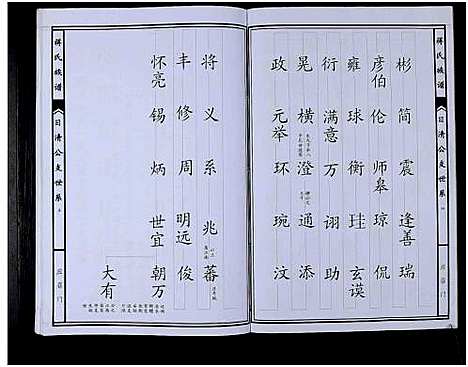 蒋氏族谱
日清公支世系
彬 简 震 逢善 瑞
彦伯 伦 师皋 琼 侃
雍 球 衡 珪 玄谟
衍 满意 万 诩 助
晃 横 澄 通 添
政 元举 环 琬 汶
将 义 系 兆 蕃
丰 修 周 明远 俊
怀亮 锡 炳 世宜 朝万
大有
蒋氏族谱
日清公支世系